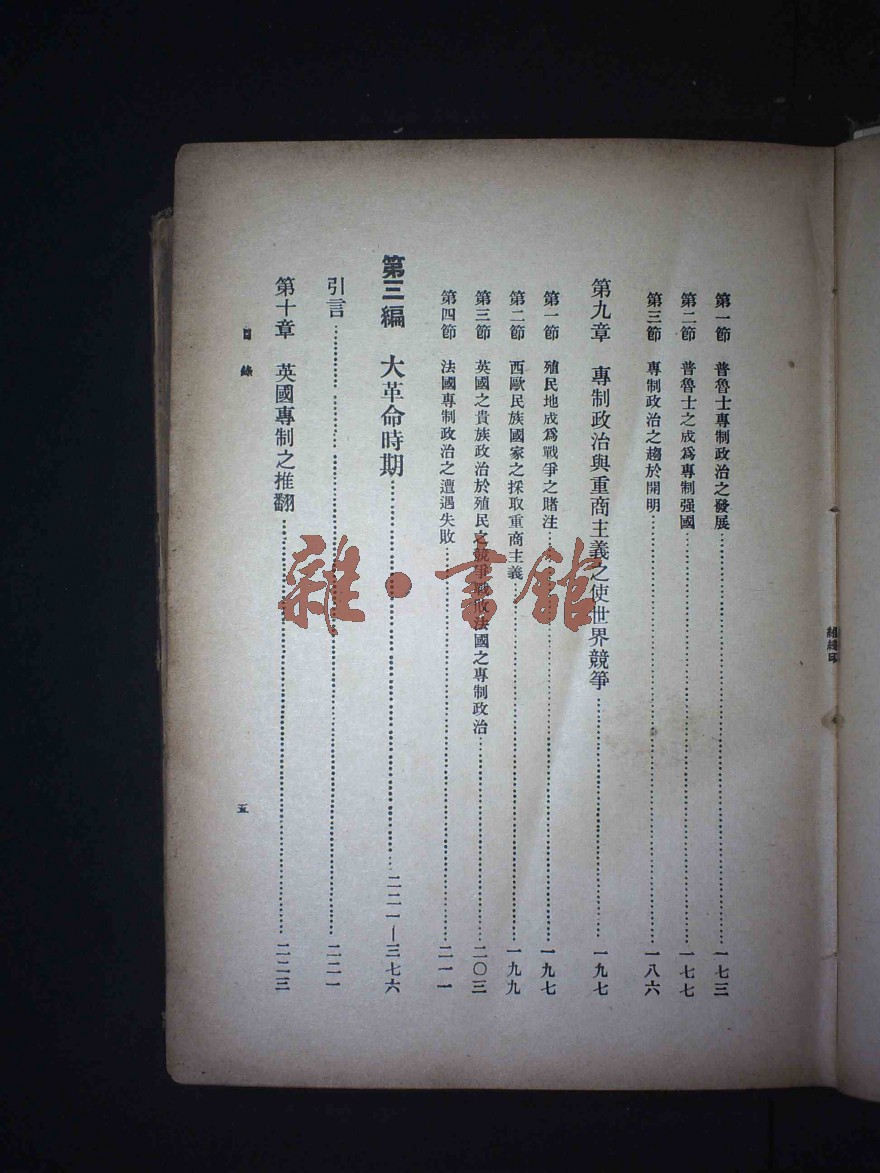 第一節 普魯士專制政治之發展……一七三
第二節 普魯士之成爲專制强國……一七七
第三節 專制政治之趨於開明……一八六
第九章 專制政治與重商主義之使世界競爭……一九七
第一節 殖民地成爲戰爭之賭注……一九七
第二節 西歐民族國家之採取重商主義……一九九
第三節 英國之貴族政治於殖民之競爭戰敗法國之專制政治……二〇三
第四節 法國專制政治之遭遇失敗……二一一
第三編 大革命時期……二二一—三七六
引言……二二一
第十章 英國專制之推翻……二二三
目錄
五
雜·書館